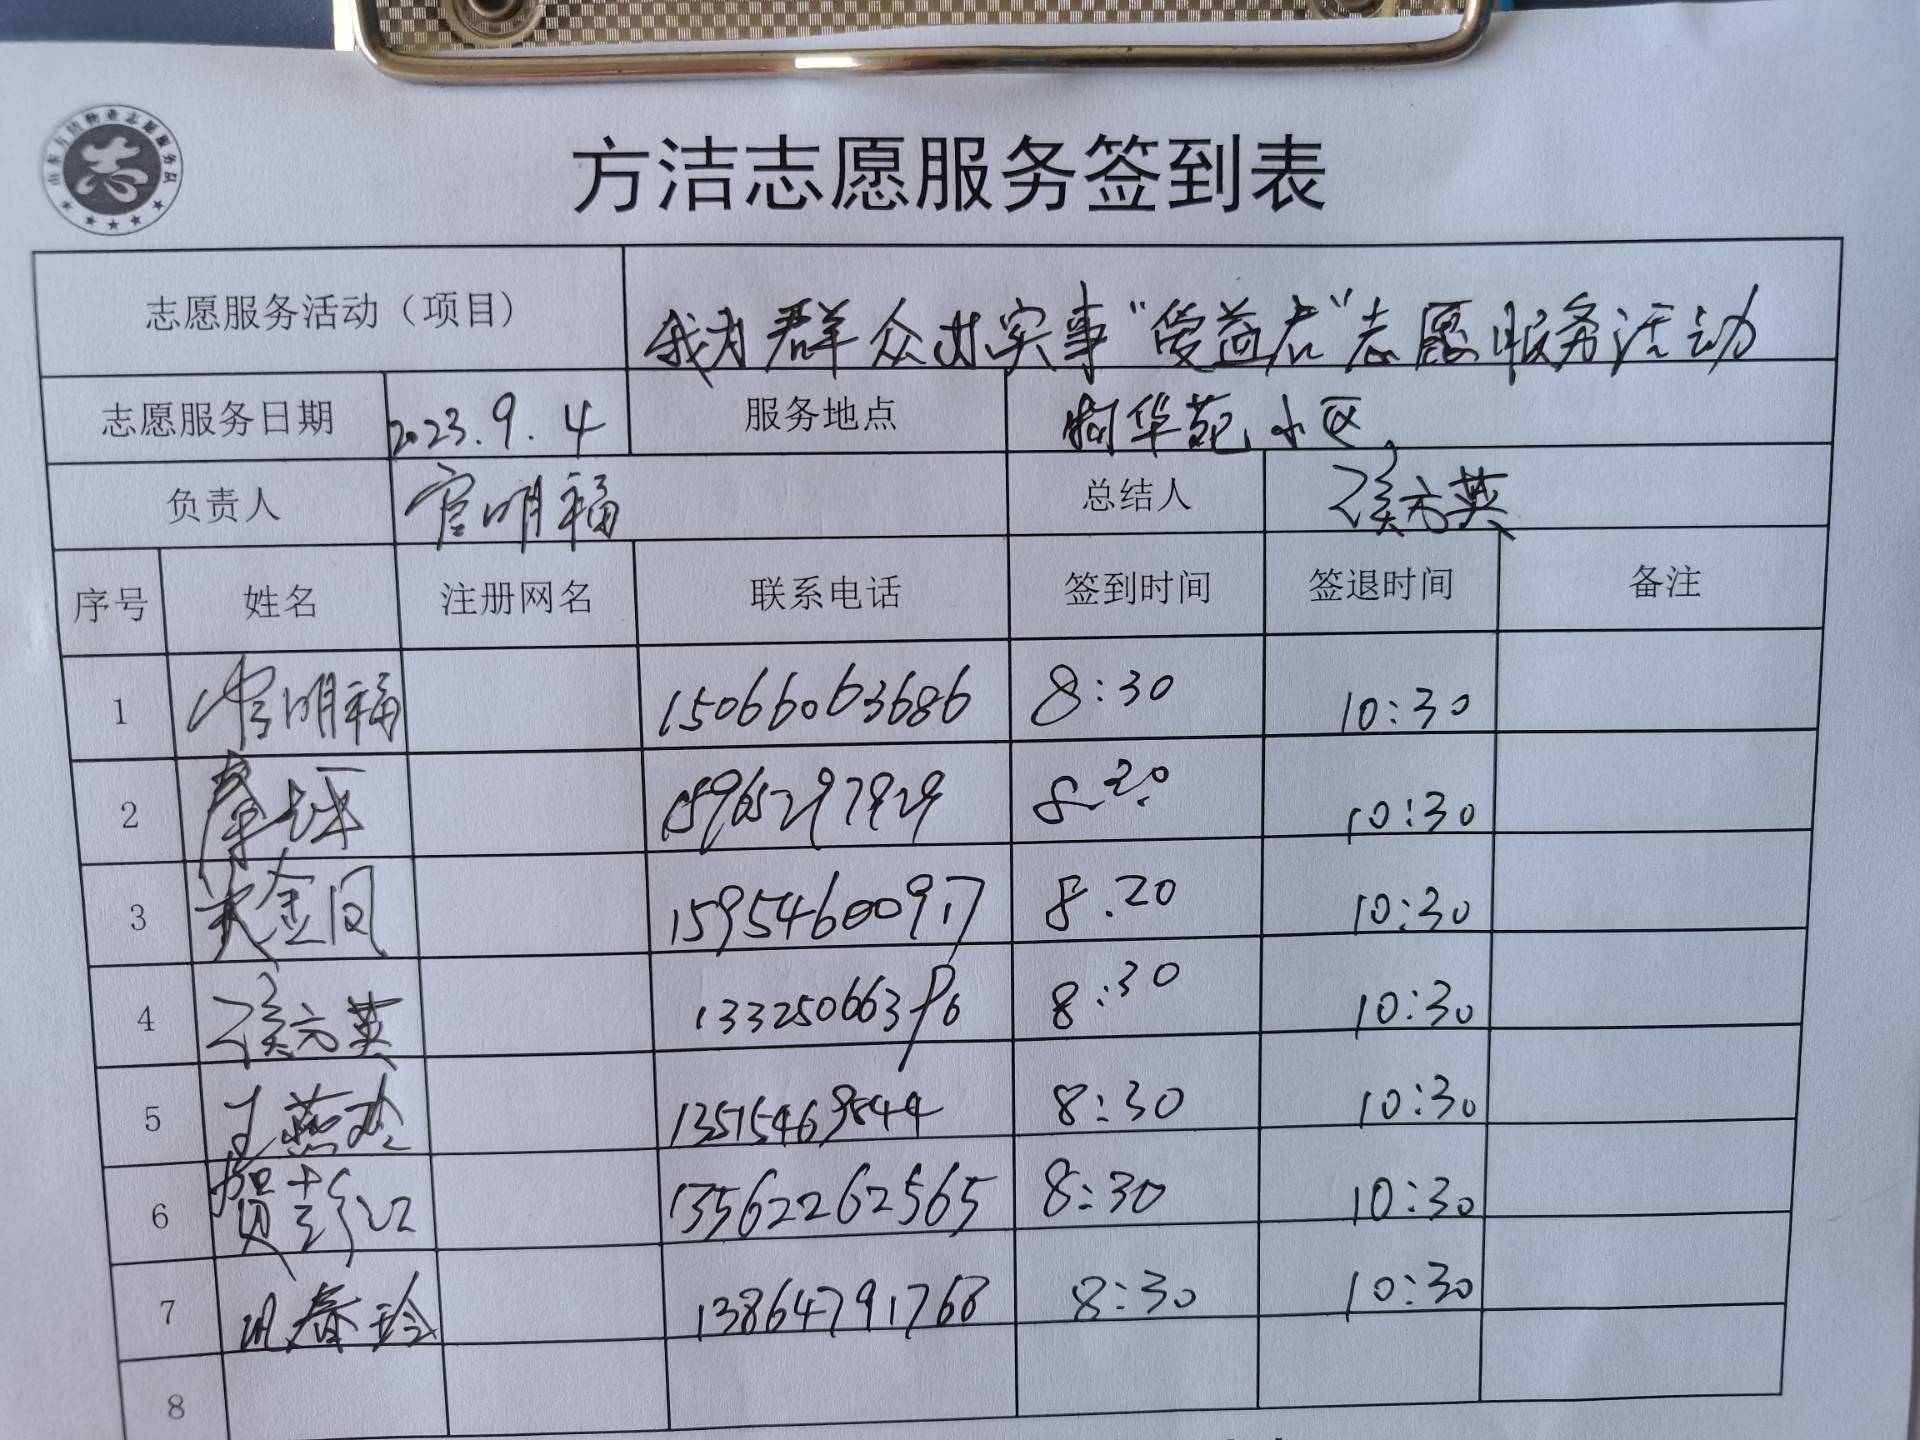 山东方洁物业志愿服务队
志
方洁志愿服务签到表
志愿服务活动（项目） 我为群众办实事“受益君”志愿服务活动
志愿服务日期 2023.9.4 服务地点 华苑小区
负责人 官明福 总结人 侯方英
序号 姓名 注册网名 联系电话 签到时间 签退时间 备注
1 官明福 15066063686 8:30 10:30
2 15965297929 8.20 10:30
3 黄金凤 15954600917 8.20 10:30
4 侯方英 8:30 10:30
5 王燕 13515469844 8:30 10:30
6 贺彭江 13562262565 8:30 10:30
7 巩春玲 13864791768 8:30 10:30
8